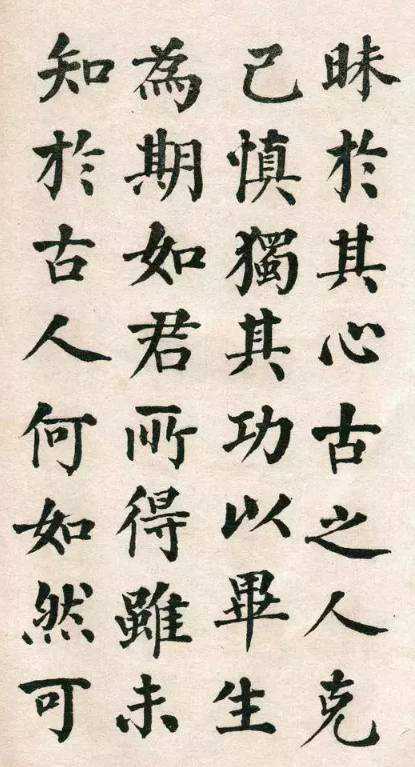 昧於其心古之人克
己慎獨其功以畢生
為期如君所得雖未
知於古人何如然可